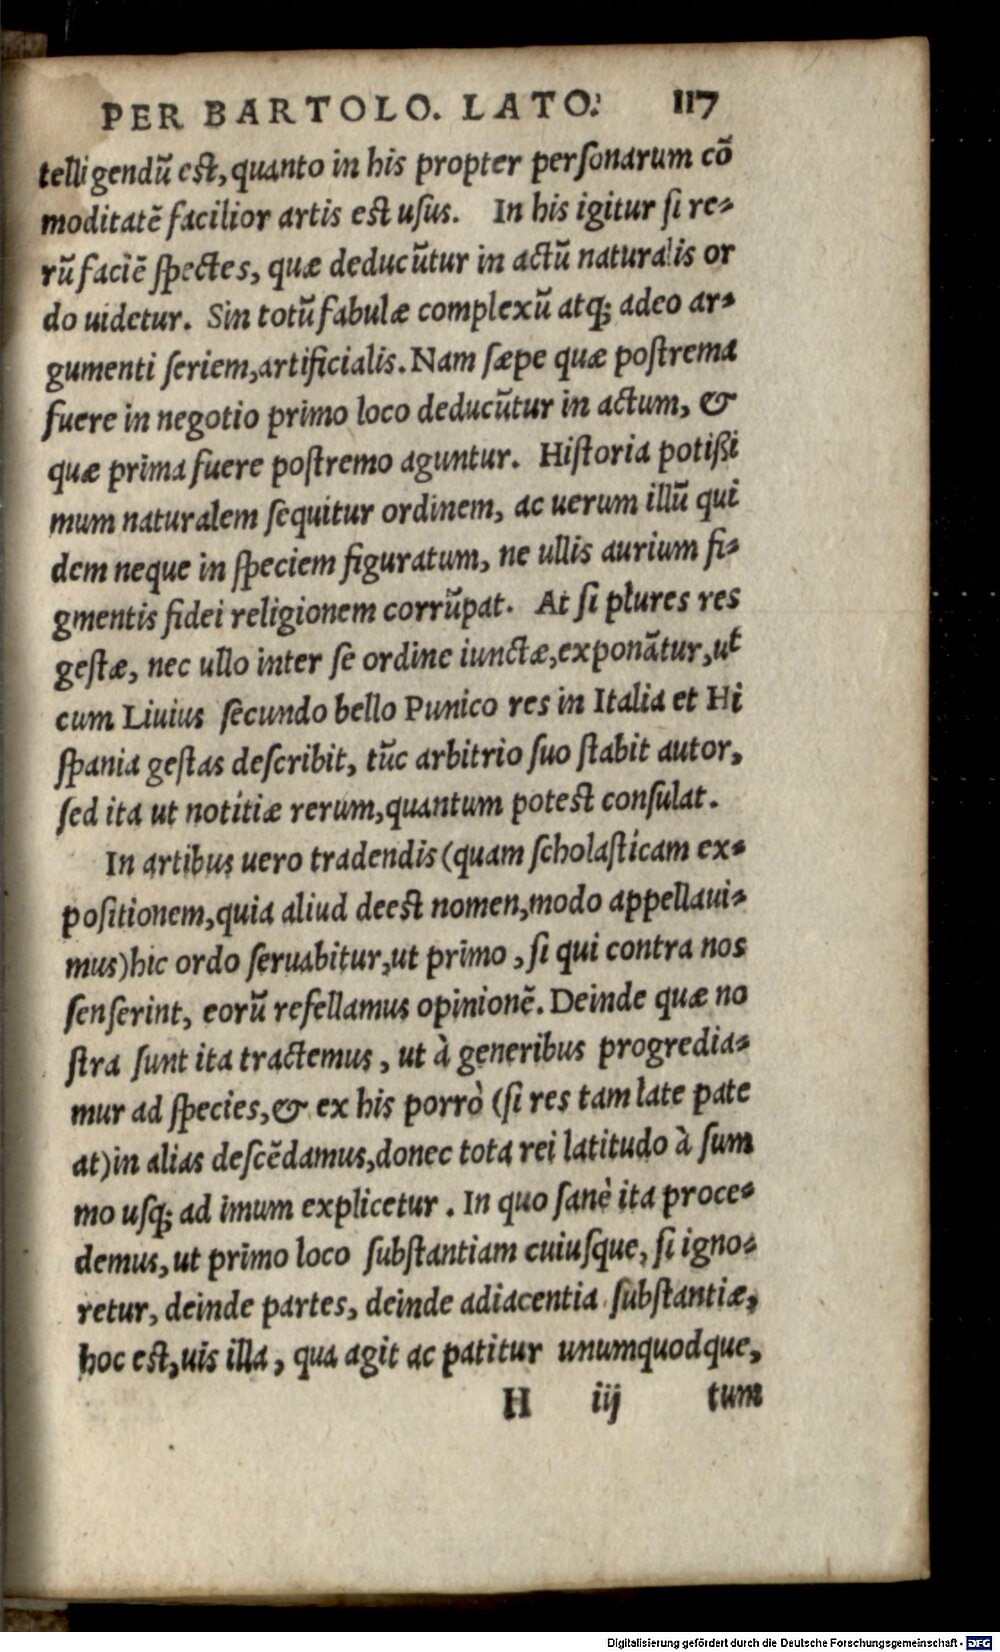 PER BARTOLO. LATO. 117
telligendũ est, quanto in his propter personarum cõ
moditatẽ facilior artis est usus. In his igitur si re-
rũ faciẽ spectes, quæ deducũtur in actũ naturalis or
do uidetur. Sin totũ fabulæ complexũ atq; adeo ar-
gumenti seriem, artificialis. Nam sæpe quæ postrema
fuere in negotio primo loco deducũtur in actum, &
quæ prima fuere postremo aguntur. Historia potißi
mum naturalem sequitur ordinem, ac uerum illũ qui
dem neque in speciem figuratum, ne ullis aurium fi-
gmentis fidei religionem corrũpat. At si plures res
gestæ, nec ullo inter se ordine iunctæ, exponãtur, ut
cum Liuius secundo bello Punico res in Italia et Hi
spania gestas describit, tũc arbitrio suo stabit autor,
sed ita ut notitiæ rerum, quantum potest consulat.
In artibus uero tradendis (quam scholasticam ex-
positionem, quia aliud deest nomen, modo appellaui-
mus) hic ordo seruabitur, ut primo, si qui contra nos
senserint, eorũ refellamus opinionẽ. Deinde quæ no
stra sunt ita tractemus, ut à generibus progredia-
mur ad species, & ex his porrò (si res tam late pate
at) in alias descẽdamus, donec tota rei latitudo à sum
mo usq; ad imum explicetur. In quo sanè ita proce-
demus, ut primo loco substantiam cuiusque, si igno-
retur, deinde partes, deinde adiacentia substantiæ,
hoc est, uis illa, qua agit ac patitur unumquodque,
H iij tum
Digitalisierung gefördert durch die Deutsche Forschungsgemeinschaft - DFG